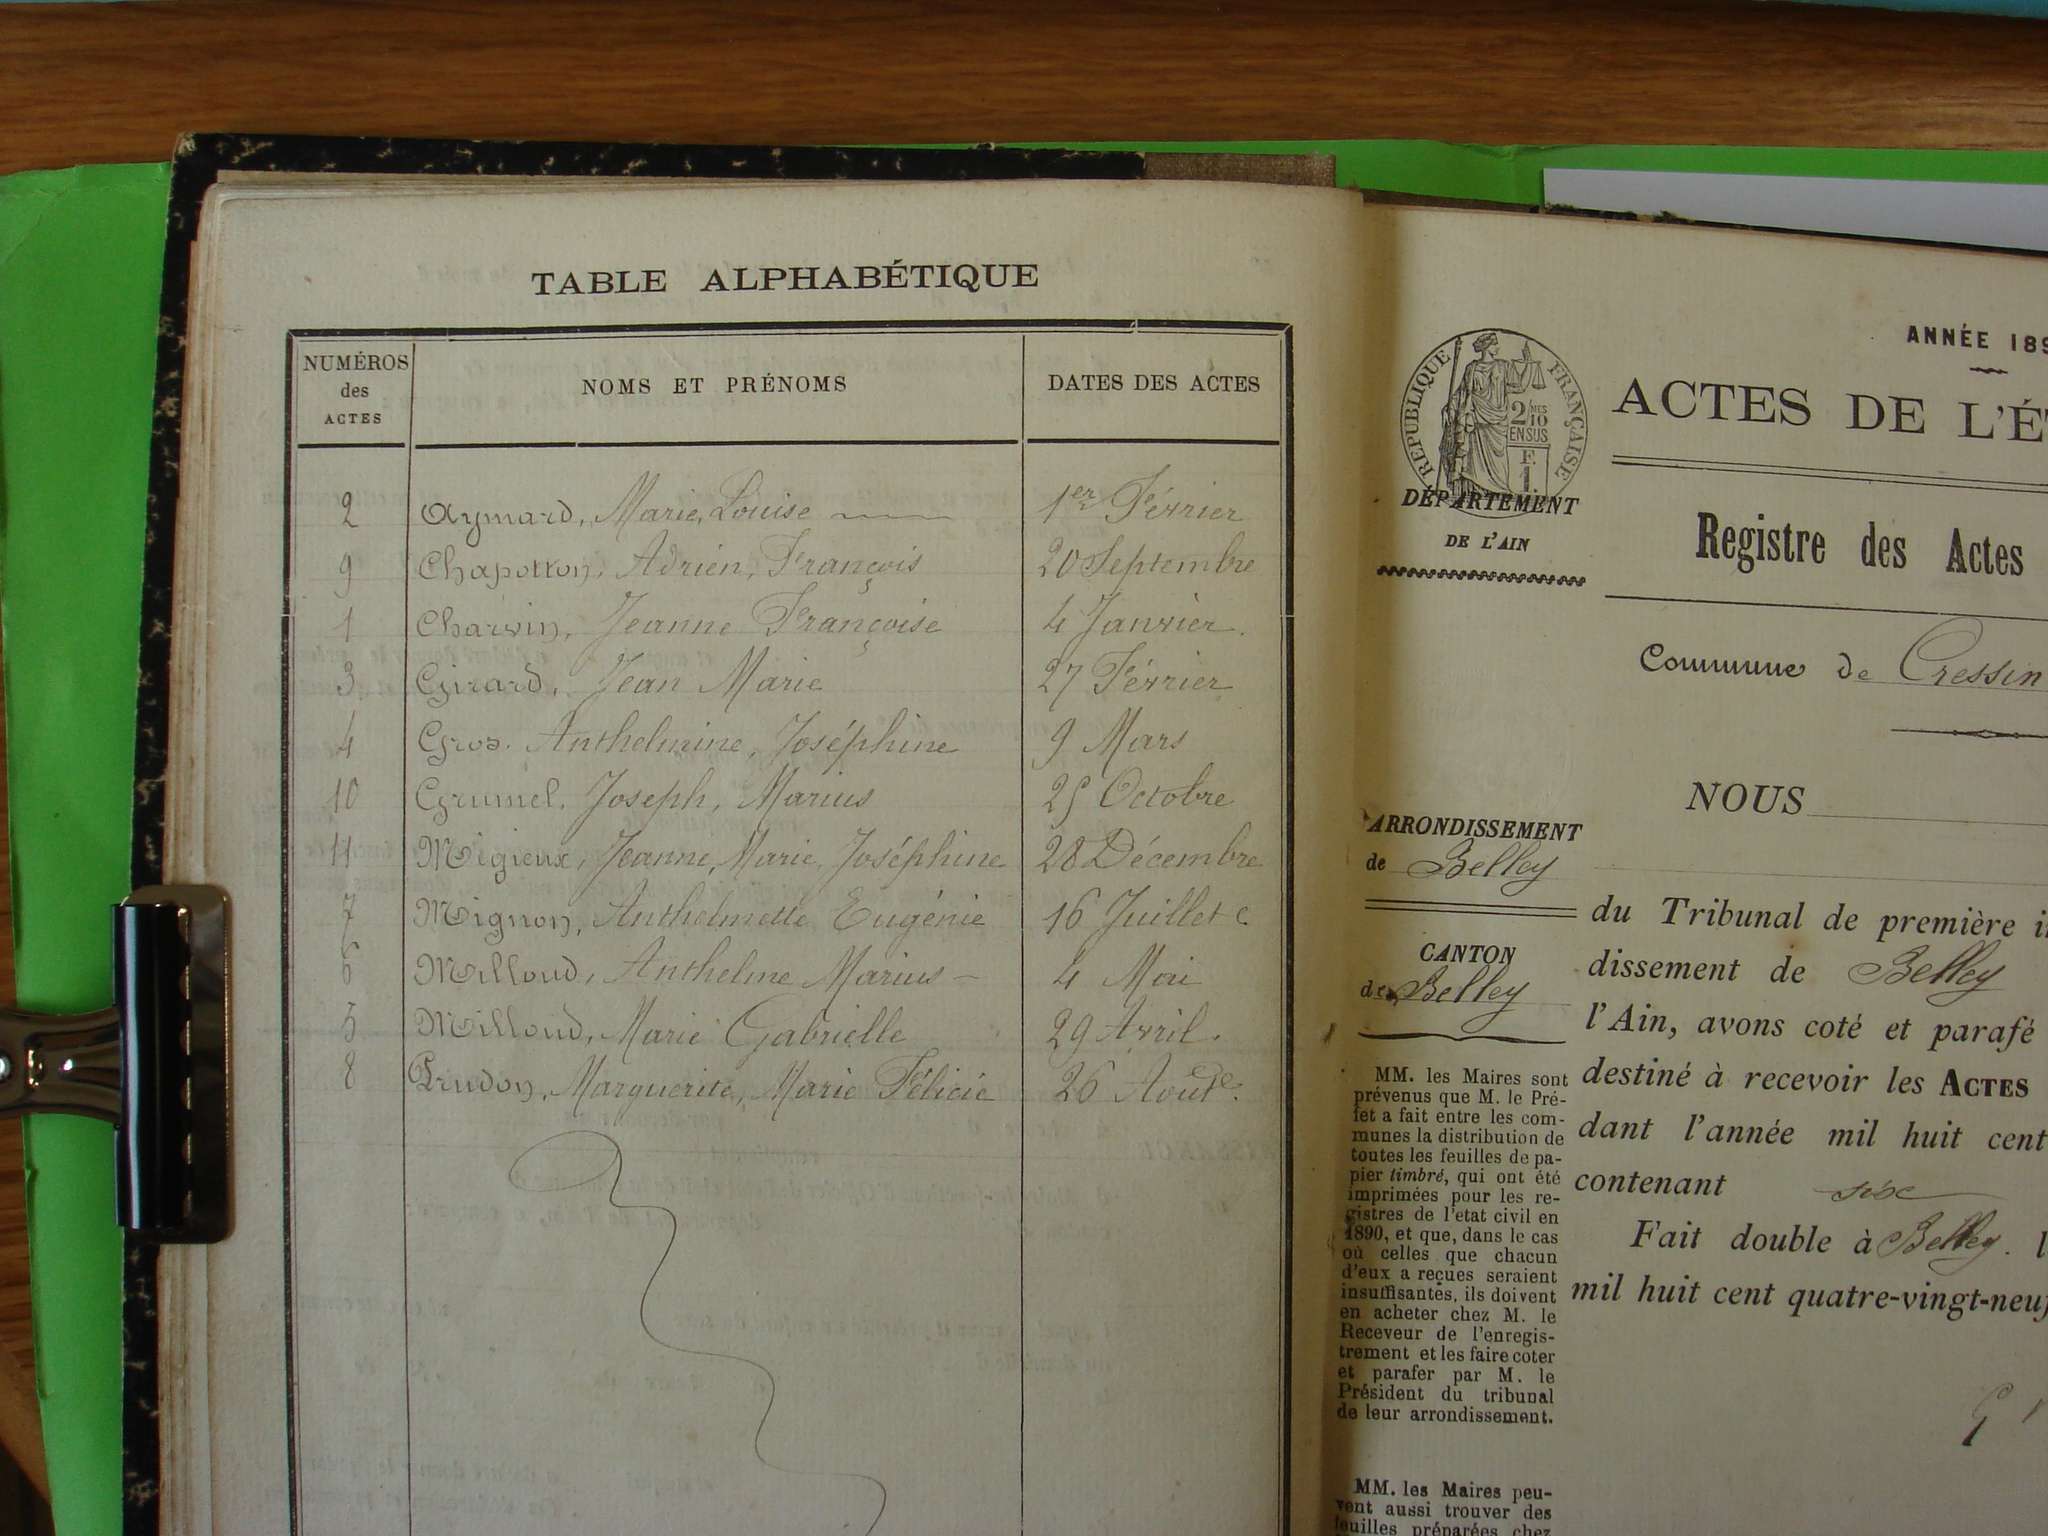 TABLE ALPHABÉTIQUE
NUMÉROS des ACTES NOMS ET PRÉNOMS DATES DES ACTES
2 Aymard, Marie, Louise 1er Février
9 Chapotton, Adrien, François 20 Septembre
1 Charvin, Jeanne Françoise 4 Janvier.
3 Girard, Jean Marie 27 Février
4 Gros. Anthelmine, Joséphine 9 Mars
10 Grumel. Joseph, Marius 25 Octobre
11 Migieux, Jeanne, Marie, Joséphine 28 Décembre
7 Mignon, Anthelmette Eugénie 16 Juillet
6 Milloud, Anthelme Marius 4 Mai
5 Milloud, Marie Gabrielle 29 Avril.
8 Prudon, Marguerite, Marie Félicie 26 Août
ANNÉE 189
RÉPUBLIQUE FRANÇAISE
2/10 MES
EN SUS
F.
1.
ACTES DE L'ÉT
DÉPARTEMENT
DE L'AIN
Registre des Actes
Commune de Cressin
NOUS
ARRONDISSEMENT
de Belley
CANTON
de Belley
du Tribunal de première in
dissement de Belley
l'Ain, avons coté et parafé
destiné à recevoir les ACTES
dant l'année mil huit cent
contenant six
Fait double à Belley. l
mil huit cent quatre-vingt-neuf
MM. les Maires sont
prévenus que M. le Pré-
fet a fait entre les com-
munes la distribution de
toutes les feuilles de pa-
pier timbré, qui ont été
imprimées pour les re-
gistres de l'etat civil en
1890, et que, dans le cas
où celles que chacun
d'eux a reçues seraient
insuffisantes, ils doivent
en acheter chez M. le
Receveur de l'enregis-
trement et les faire coter
et parafer par M. le
Président du tribunal
de leur arrondissement.
MM. les Maires peu-
vent aussi trouver des
feuilles préparées chez